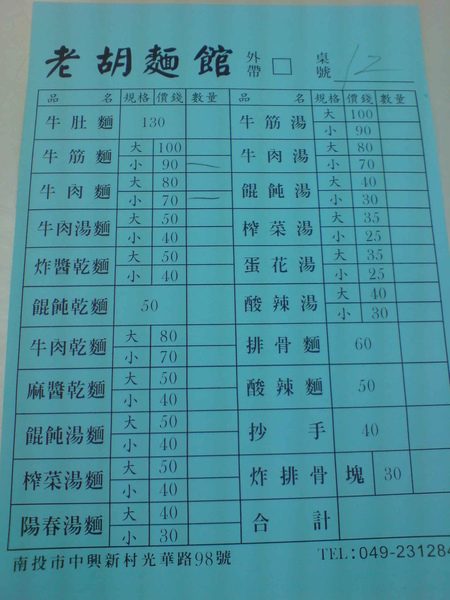 老胡麵館 外帶 □ 桌號 12
品名 規格 價錢 數量 品名 規格 價錢 數量
牛肚麵 130 牛筋湯 大 100
小 90
牛筋麵 大 100 牛肉湯 大 80
小 90 一 小 70
牛肉麵 大 80 餛飩湯 大 40
小 70 一 小 30
牛肉湯麵 大 50 榨菜湯 大 35
小 40 小 25
炸醬乾麵 大 50 蛋花湯 大 35
小 40 小 25
餛飩乾麵 50 酸辣湯 大 40
小 30
牛肉乾麵 大 80 排骨麵 60
小 70
麻醬乾麵 大 50 酸辣麵 50
小 40
餛飩湯麵 大 50 抄手 40
小 40
榨菜湯麵 大 50 炸排骨 塊 30
小 40
陽春湯麵 大 40 合計
小 30
南投市中興新村光華路98號 TEL:049-231284